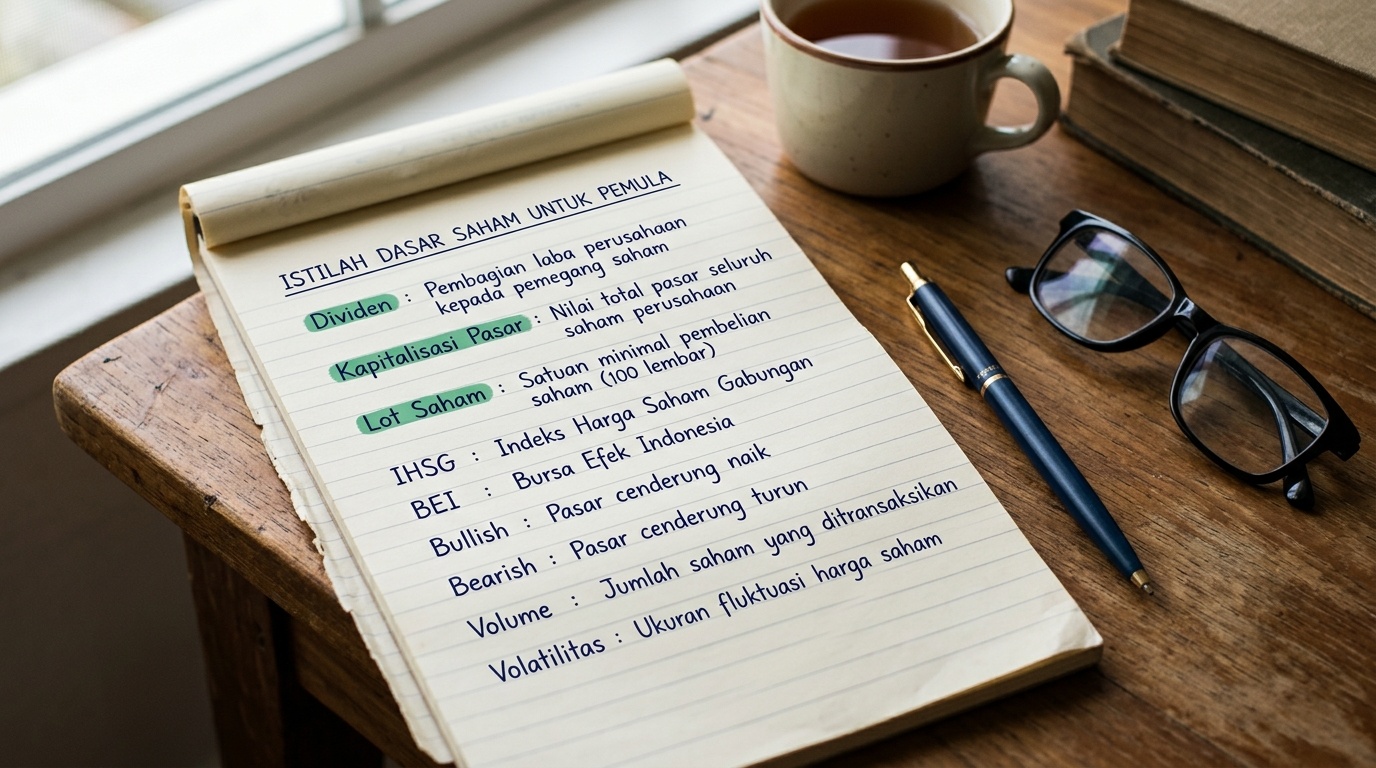 ISTILAH DASAR SAHAM UNTUK PEMULA
Dividen : Pembagian laba perusahaan
kepada pemegang saham
Kapitalisasi Pasar : Nilai total pasar seluruh
saham perusahaan
Lot Saham : Satuan minimal pembelian
saham (100 lembar)
IHSG : Indeks Harga Saham Gabungan
BEI : Bursa Efek Indonesia
Bullish : Pasar cenderung naik
Bearish : Pasar cenderung turun
Volume : Jumlah saham yang ditransaksikan
Volatilitas : Ukuran fluktuasi harga saham